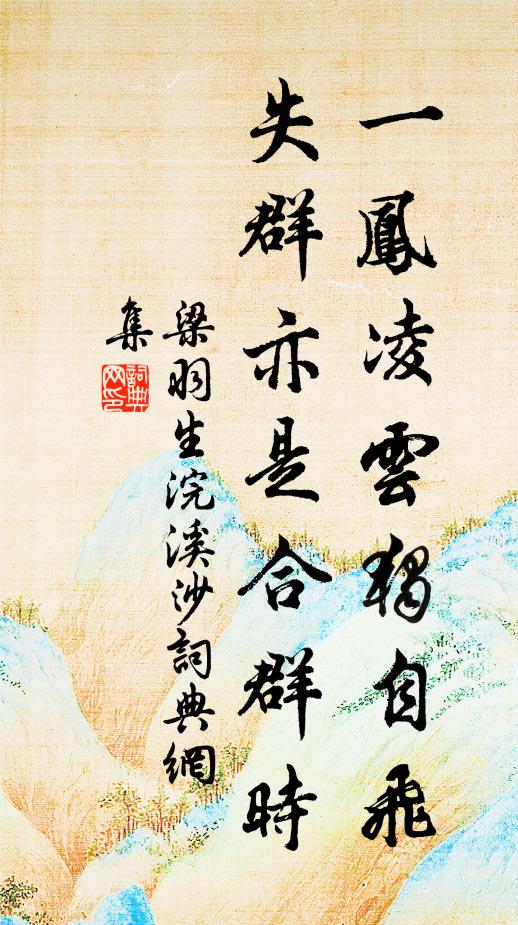 一鳳凌雲獨自飛
失群亦是合群時
梁羽生浣溪沙詞典網
集
詞典網印